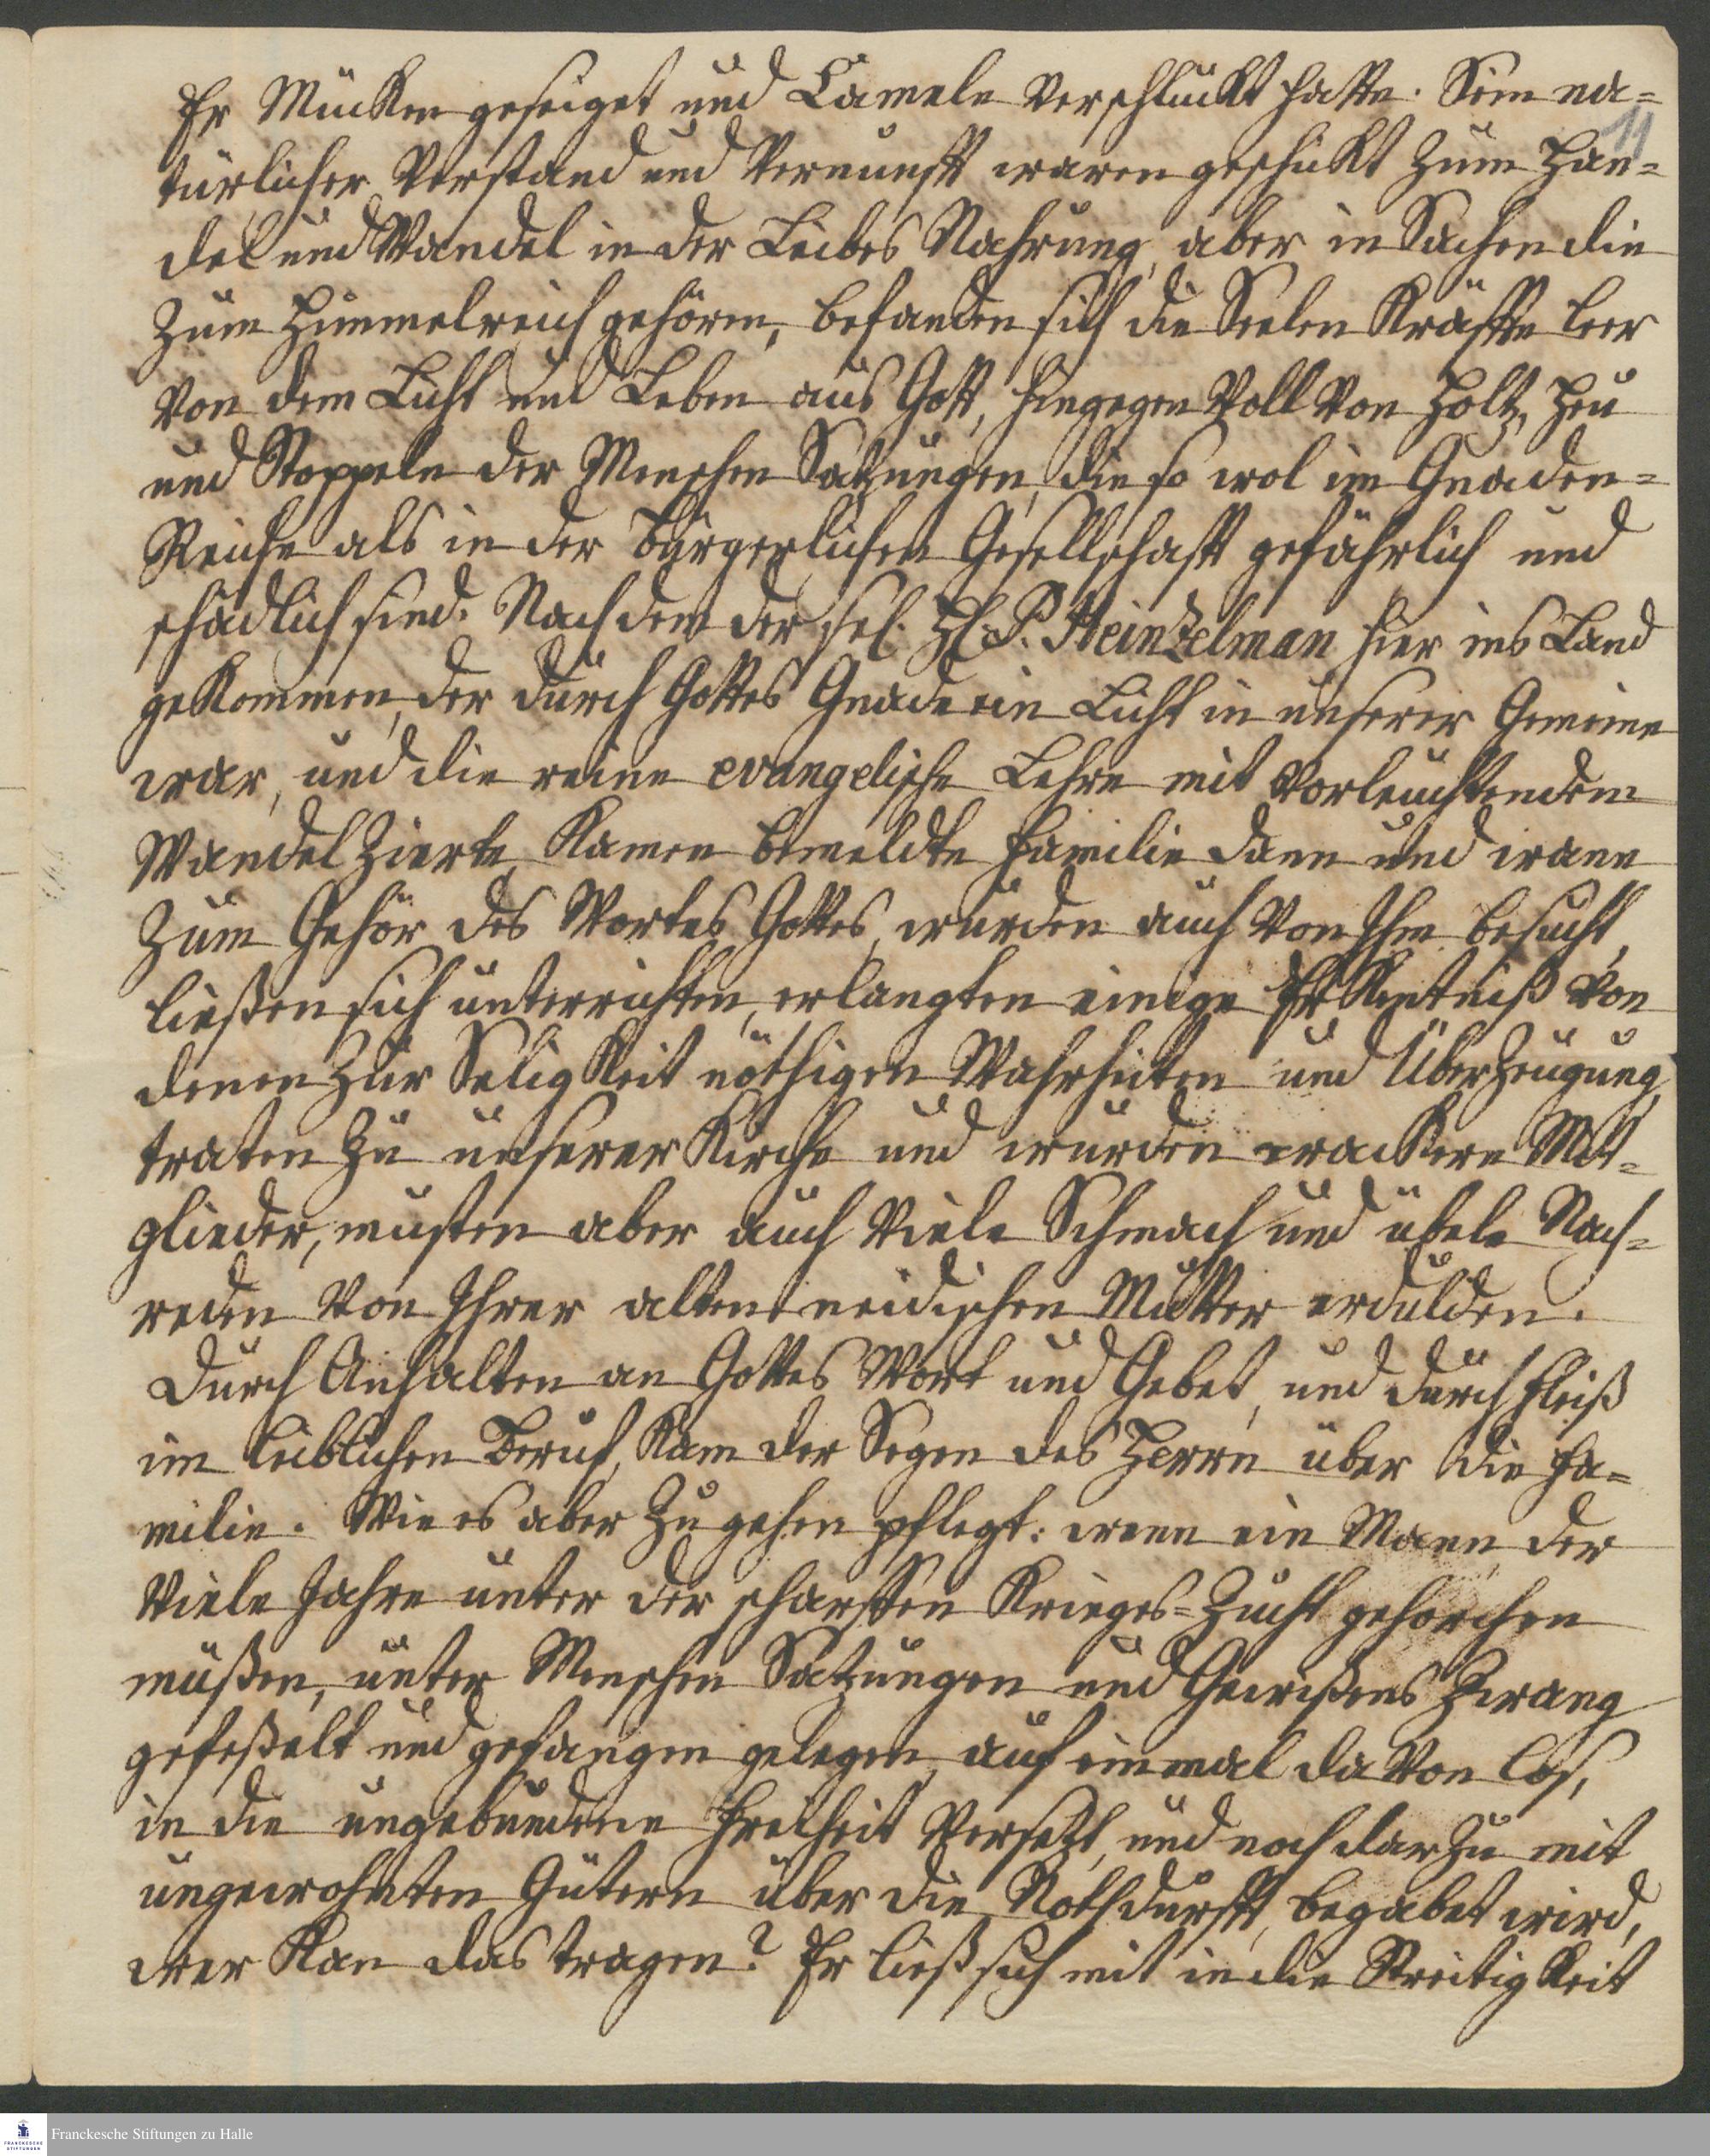 Er Mücken geseiget und Camele verschluckt hatte. Sein na=
11
türlicher Verstand und Vernunfft waren geschickt zum Han=
del und Wandel in der Leibes Nahrung, aber in Sachen die
zum Himmelreich gehören, befanden sich die Seelen Kräffte leer
von dem Licht und Leben aus Gott, hingegen voll von Holtz, Heu
und Stoppeln der Menschen Satzungen, die so wol im Gnaden=
Reiche als in der bürgerlichen Gesellschafft gefährlich und
schädlich sind. Nachdem der sel. H. P. Heinzelman hier ins Land
gekommen, der durch Gottes Gnade ein Licht in unserer Gemeine
war, und die reine evangelische Lehre mit vorleuchtendem
Wandel zierte, kamen bemeldte Familie dann und wann
zum Gehör des Wortes Gottes, wurden auch von Ihm besucht,
ließen sich unterrichten, erlangten einige Erkentniß von
denen zur Seligkeit nöthigen Wahrheiten und Überzeugung,
traten zu unserer Kirche und wurden wackere Mit=
glieder, musten aber auch viele Schmach und übele Nach=
reden von Ihrer alten neidischen Mutter erdulden.
Durch Anhalten an Gottes Wort und Gebet, und durch Fleiß
im leiblichen Beruf, kam der Segen des Herrn über die Fa=
milie. Wie es aber zu gehen pflegt: wenn ein Mann der
viele Jahre unter der scharffen Krieges=Zucht gehorchen
müßen, unter Menschen Satzungen und Gewißens Zwang
gefeßelt und gefangen gelegen, auf einmal davon los,
in die ungebundene Freiheit versetzt, und noch darzu mit
ungewohnten Gütern über die Nothdurfft, begabet wird,
wer kan das tragen? Er ließ sich mit in die Streitigkeit
FRANCKESCHE STIFTUNGEN
Franckesche Stiftungen zu Halle